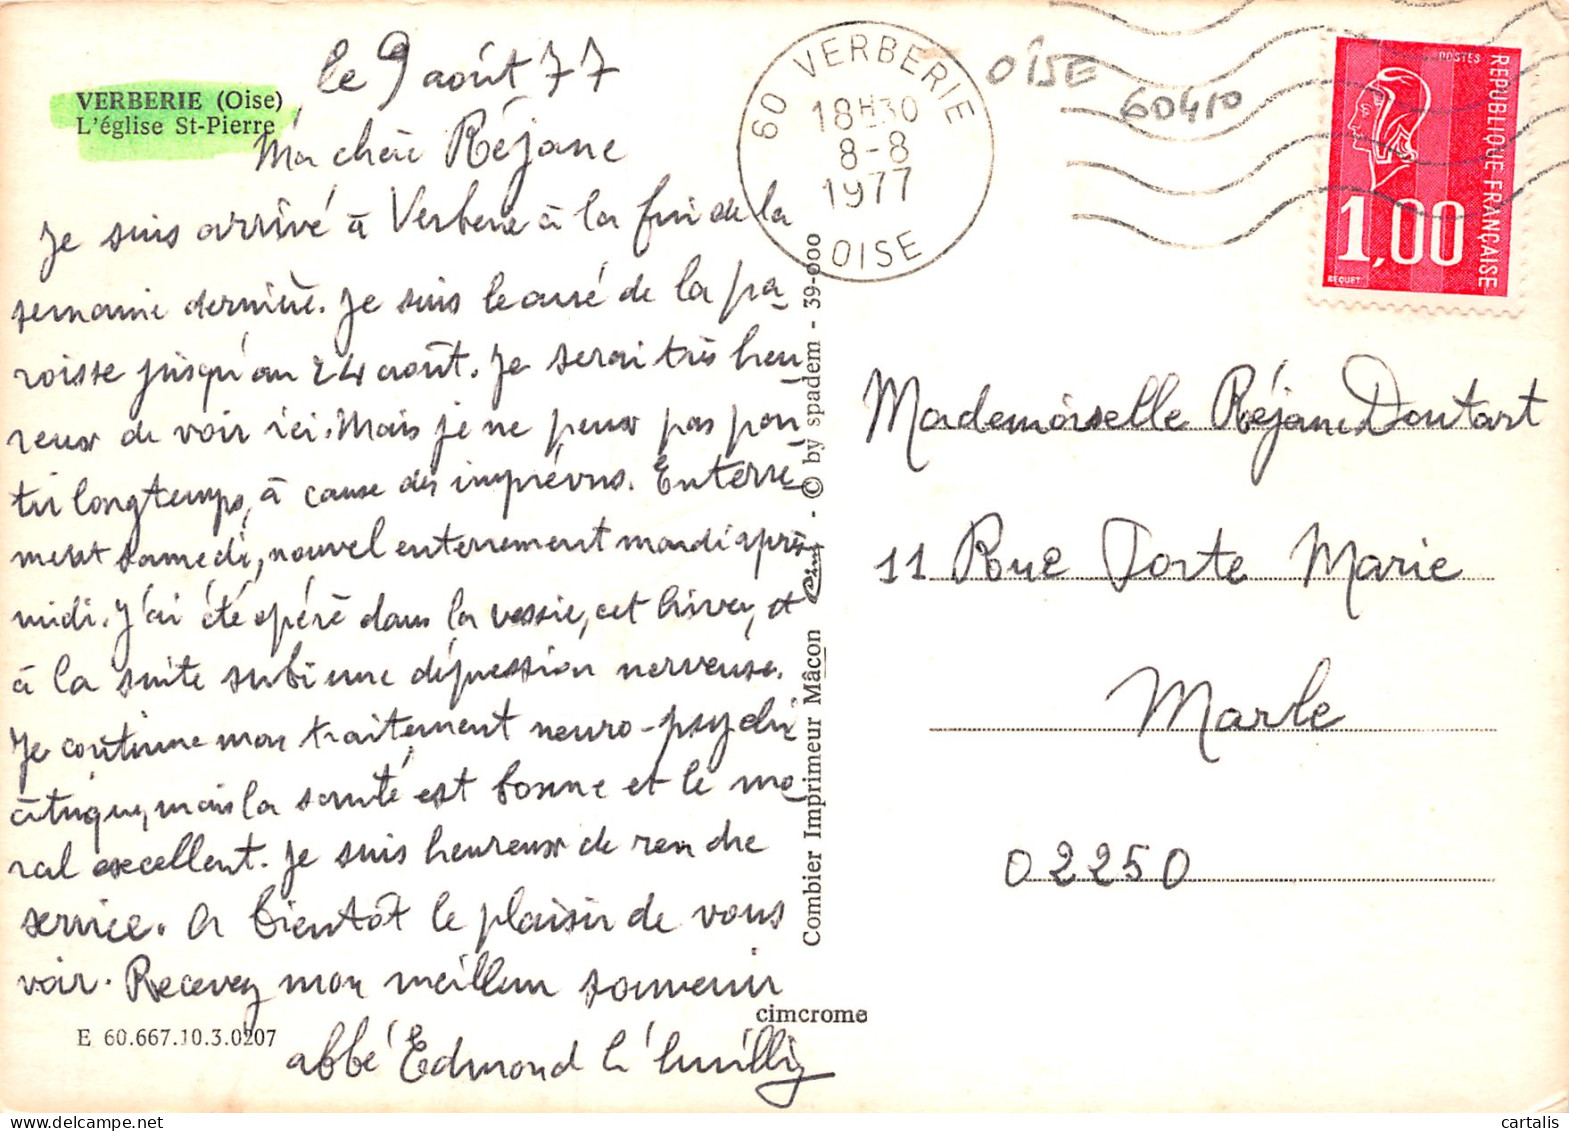 VERBERIE (Oise)
L'église St-Pierre
le 9 août 77
Ma chère Réjane
Je suis arrivé à Verberie à la fin de la
semaine dernière. Je suis le curé de la pa-
roisse jusqu'au 24 août. Je serai très heu-
reux de voir ici. Mais je ne peux pas
tir longtemps, à cause des imprévus. Enterre-
ment samedi, nouvel enterrement mardi après
midi. J'ai été opéré dans la vessie, cet hiver, et
à la suite subi une dépression nerveuse.
Je continue mon traitement neuro-psychi
atrique, mais la santé est bonne et le mo-
ral excellent. Je suis heureux de rendre
service. A bientôt le plaisir de vous
voir. Recevez mon meilleur souvenir
abbé Edmond
E 60.667.10.3.0207
cimcrome
Combier Imprimeur Mâcon Cim - © by spadem - 39-000
60 VERBERIE
18H30
8-8
1977
OISE
OISE
60410
POSTES
REPUBLIQUE FRANÇAISE
1,00
BEQUET
Mademoiselle Réjane Doutart
11 Rue Porte Marie
Marle
02250
cartalis